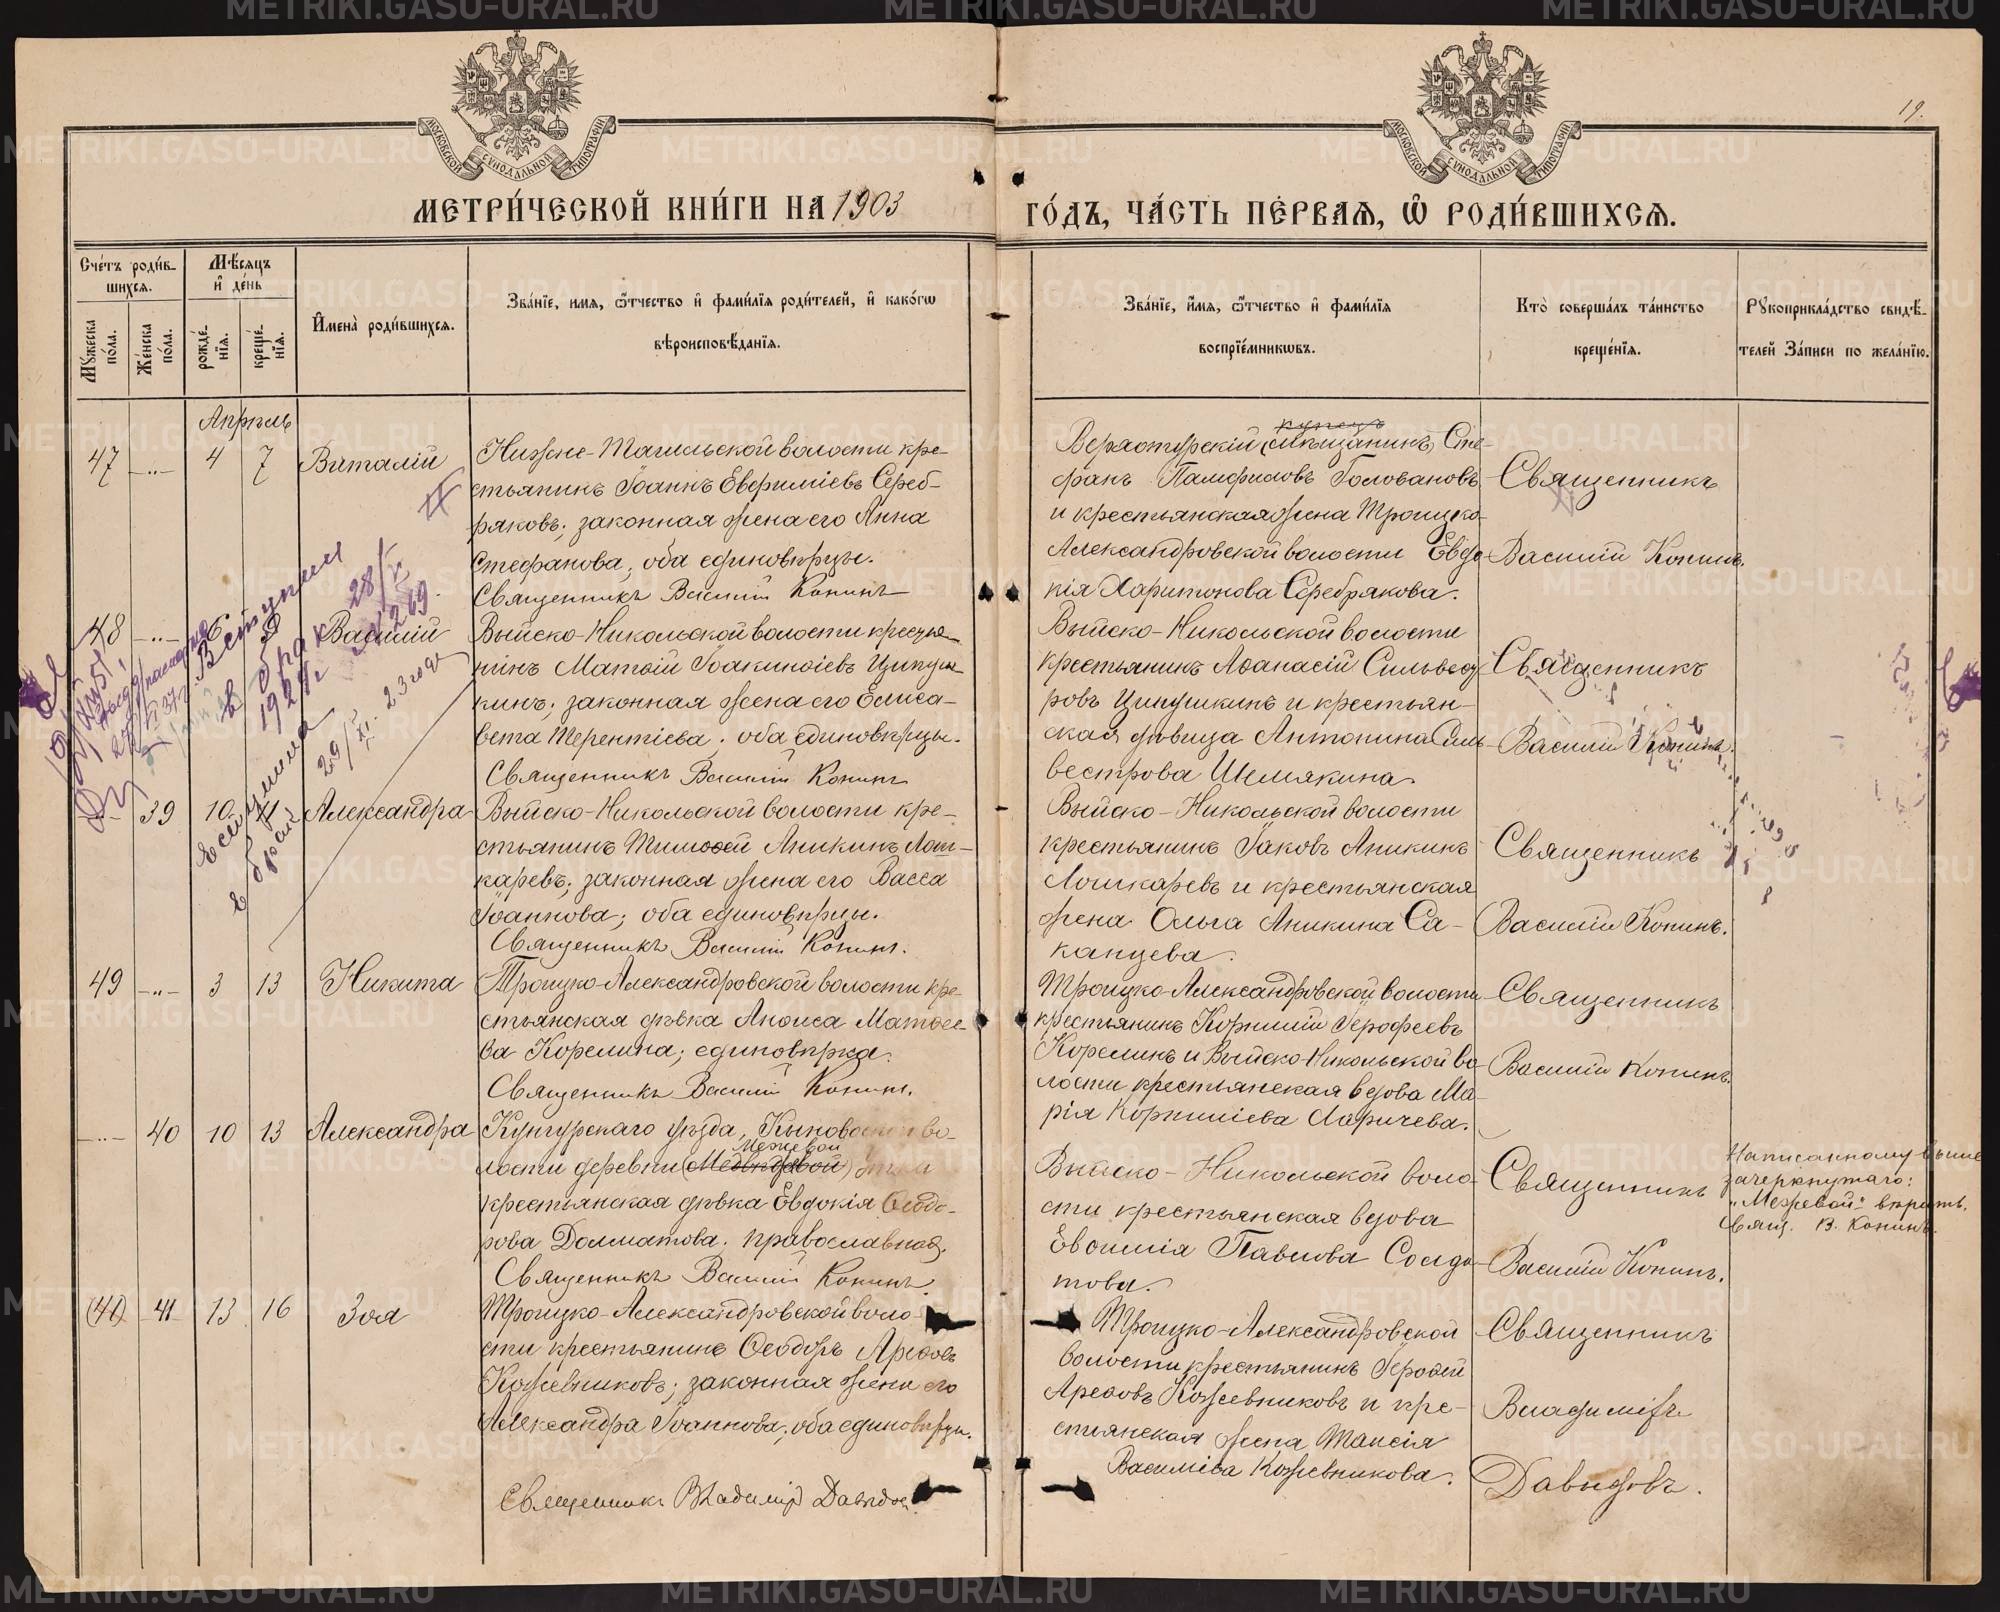 19.
МОСКОВСКОЙ СУНОДАЛЬНОЙ ТИПОГРАФИИ
МОСКОВСКОЙ СУНОДАЛЬНОЙ ТИПОГРАФИИ
МЕТРИ́ЧЕСКОЙ КНИ́ГИ НА 1903
ГО́ДЪ, ЧА́СТЬ ПЕ́РВАЯ, Ѡ҆ РОДИ́ВШИХСЯ.
Сче́тъ роди́в-
шихся.
Мꙋ́жеска по́ла.
Же́нска по́ла.
Мѣ́сяцъ и҆ де́нь
рожде́нїя.
креще́нїя.
И҆мена̀ роди́вшихся.
Зва́нїе, имя, ѻ҆́тчество и҆ фами́лїя роди́телей, и҆ како́гѡ
вѣроисповѣ́данїя.
Зва́нїе, и҆́мя, ѻ҆́тчество и҆ фами́лїя
воспрїе́мникѡвъ.
Кто̀ соверша́лъ та́инство
креще́нїя.
Рꙋкоприкла́дство свидѣ́-
телей За́писи по жела́нїю.
Апрѣль
47 -„- 4 7 Виталій
Нижне-Тагильской волости кре-
стьянинъ Іоаннъ Евфиміевъ Сереб-
ряковъ; законная жена его Анна
Стефанова, оба единовѣрцы.
Священникъ Василій Конинъ
Верхотурскій (мѣщанинъ) купецъ Сте-
фанъ Памфиловъ Головановъ
и крестьянская жена Троицко-
Александровской волости Евдо-
кія Харитонова Серебрякова.
Священникъ
Василій Конинъ.
48 -„- 6 Василій
Выйско-Никольской волости крестья-
нинъ Матѳій Іоакинѳіевъ Ципуш-
кинъ; законная жена его Елиса-
вета Терентіева. оба единовѣрцы.
Священникъ Василій Конинъ
Выйско-Никольской волости
крестьянинъ Аѳанасій Сильвест
ровъ Ципушкинъ и крестьян-
ская дѣвица Антонина Силь-
вестрова Шемякина.
Священникъ
Василій Конинъ.
Вступил
в брак 28/XI
1929г №269.
29/XI. 23 годе
-„- 39 10 11 Александра
Выйско-Никольской волости кре-
стьянинъ Тимоѳей Аникинъ Лош-
каревъ; законная жена его Васса
Іоаннова; оба единовѣрцы.
Священникъ Василій Конинъ.
Выйско-Никольской волости
крестьянинъ Іаковъ Аникинъ
Лошкаревъ и крестьянская
жена Ольга Аникина Са-
канцева.
Священникъ
Василій Конинъ.
49 -„- 3 13 Никита
Троицко-Александровской волости кре-
стьянская дѣвка Анѳиса Матѳее-
ва Корелина; единовѣрка.
Священникъ Василій Конинъ.
Троицко-Александровской волости
крестьянинъ Корнилій Іерофеевъ
Корелинъ и Выйско-Никольской во-
лости крестьянская вдова Ма-
рія Корниліева Ларичева.
Священникъ
Василій Конинъ.
-„- 40 10 13 Александра
Кунгурскаго уѣзда, Кыновской во-
Межевой
лости деревни (Медвѣдевой)
крестьянская дѣвка Евдокія Ѳеодо-
рова Долматова. православная.
Священникъ Василій Конинъ.
Выйско-Никольской воло-
сти крестьянская вдова
Евфимія Павлова Солда-
това.
Священникъ
Василій Конинъ.
Написанному выше
зачеркнутаго:
„Межевой" вѣрить.
Свящ. В. Конинъ.
(41) 41 13 16 Зоя
Троицко-Александровской воло-
сти крестьянинъ Ѳеодоръ Ареѳовъ
Кожевниковъ; законная жена его
Александра Іоаннова, оба единовѣрцы.
Священникъ Владиміръ Давыдов
Троицко-Александровской
волости крестьянинъ Іероѳей
Ареѳовъ Кожевниковъ и кре-
стьянская жена Таисія
Василіева Кожевникова.
Священникъ
Владиміръ
Давыдовъ.
METRIKI.GASO-URAL.RU